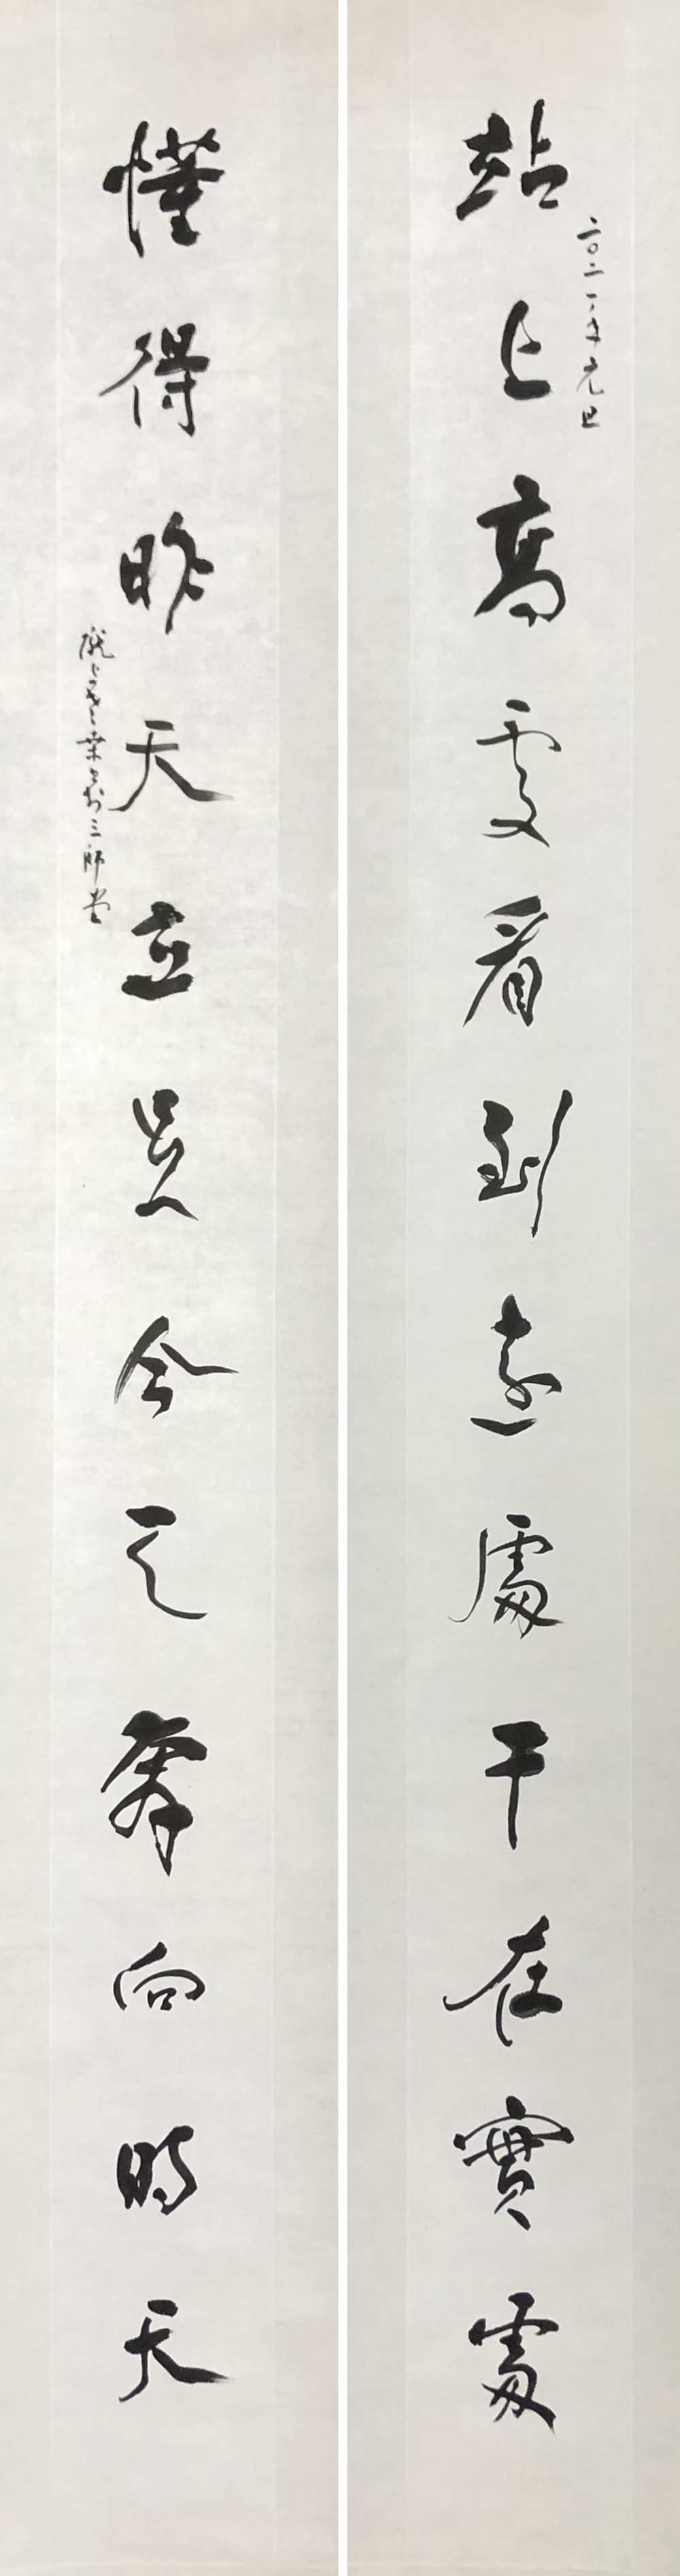 站上高處看到遠處干在實處
二〇二一年元旦
懂得昨天立足今天奮向明天
隴上三師堂